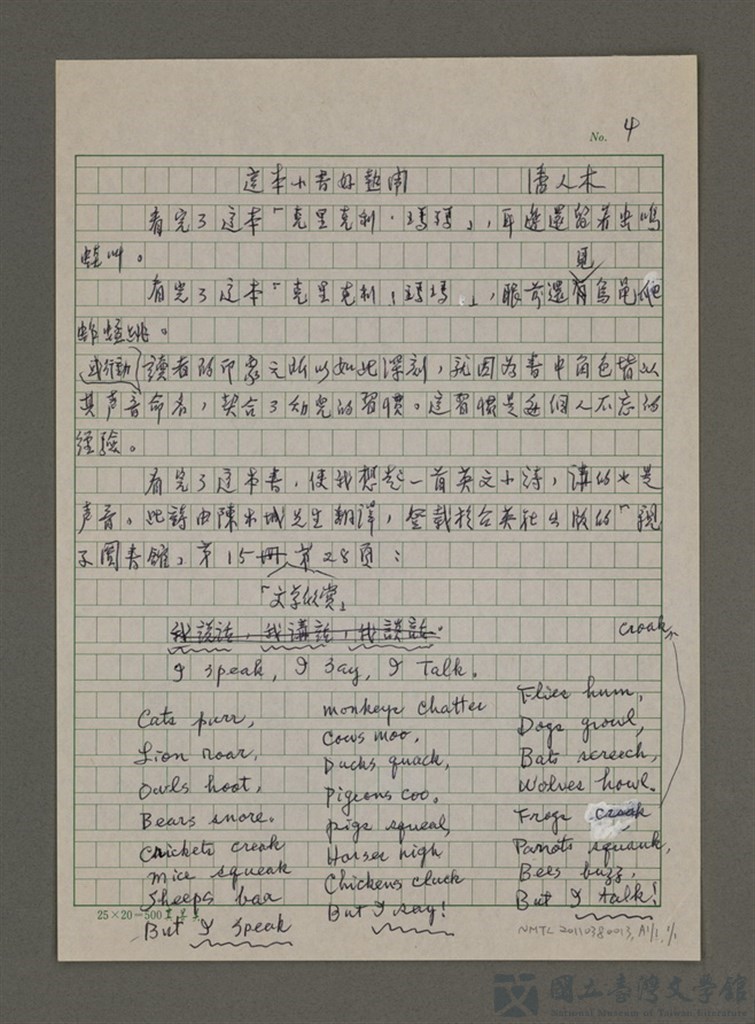 No. 4
這本小書好熱鬧 潘人木
看完了這本「克里克利·瑪瑪」,耳邊還留着虫鳴
蛙叫。
見
看完了這本「克里克利·瑪瑪」,眼前還有烏龜爬
蚱蜢跳。
或行動
讀者的印象之所以如此深刻,就因為書中角色皆以
其声音命名,契合了幼兒的習慣。這習慣是每個人不忘的
經驗。
看完了這本書,使我想起一首英文小詩,講的也是
声音。此詩由陳木城先生翻譯,登載於台英社出版的「親
子圖書館」第15冊第28頁:
「文学欣賞」
我說話,我講話,我談話。
I speak, I say, I talk.
Cats purr,
Lion roar,
Owls hoot,
Bears snore.
Crickets creak
Mice squeak
Sheeps baa
But I speak
monkeys chatter
Cows moo,
Ducks quack,
Pigeons coo,
pigs squeal,
Horses nigh
Chickens cluck
But I say!
Flies hum,
Dogs growl,
Bats screech,
Wolves howl.
Frogs croak
croak
Parrots squauk,
Bees buzz,
But I talk!
25×20=500
NMTL 20110380013, A1/1, 1/1
國立臺灣文學館
National Museum of Taiwan Literature